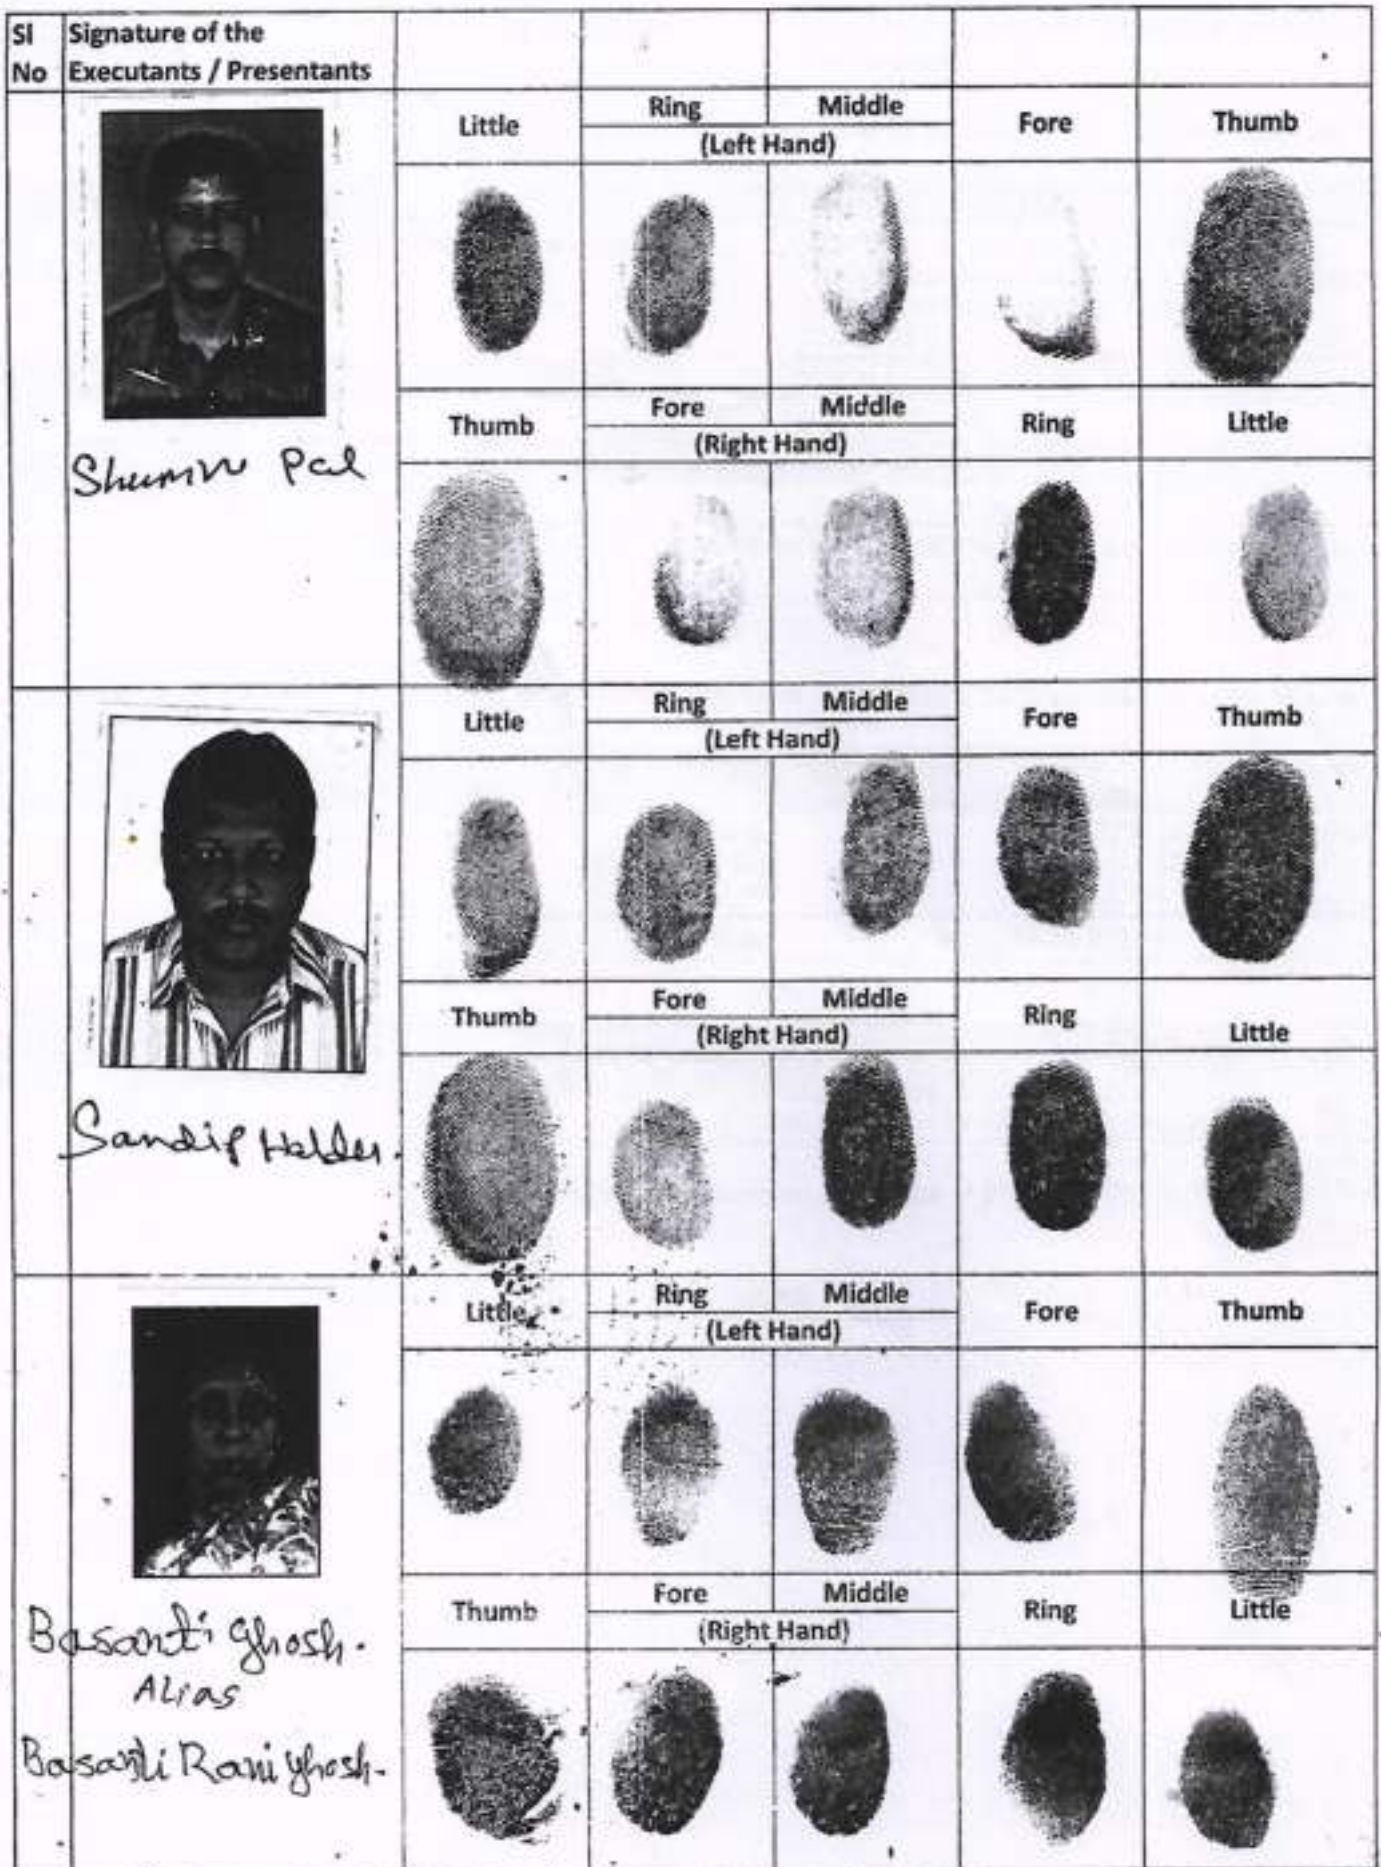 Sl Signature of the
No Executants / Presentants
Little Ring Middle Fore Thumb
(Left Hand)
Thumb Fore Middle Ring Little
(Right Hand)
Pal
Little Ring Middle Fore Thumb
(Left Hand)
Thumb Fore Middle Ring Little
(Right Hand)
Sandip Halder.
Little Ring Middle Fore Thumb
(Left Hand)
Thumb Fore Middle Ring Little
(Right Hand)
Basanti Ghosh.
Alias
Basanti Rani Ghosh.